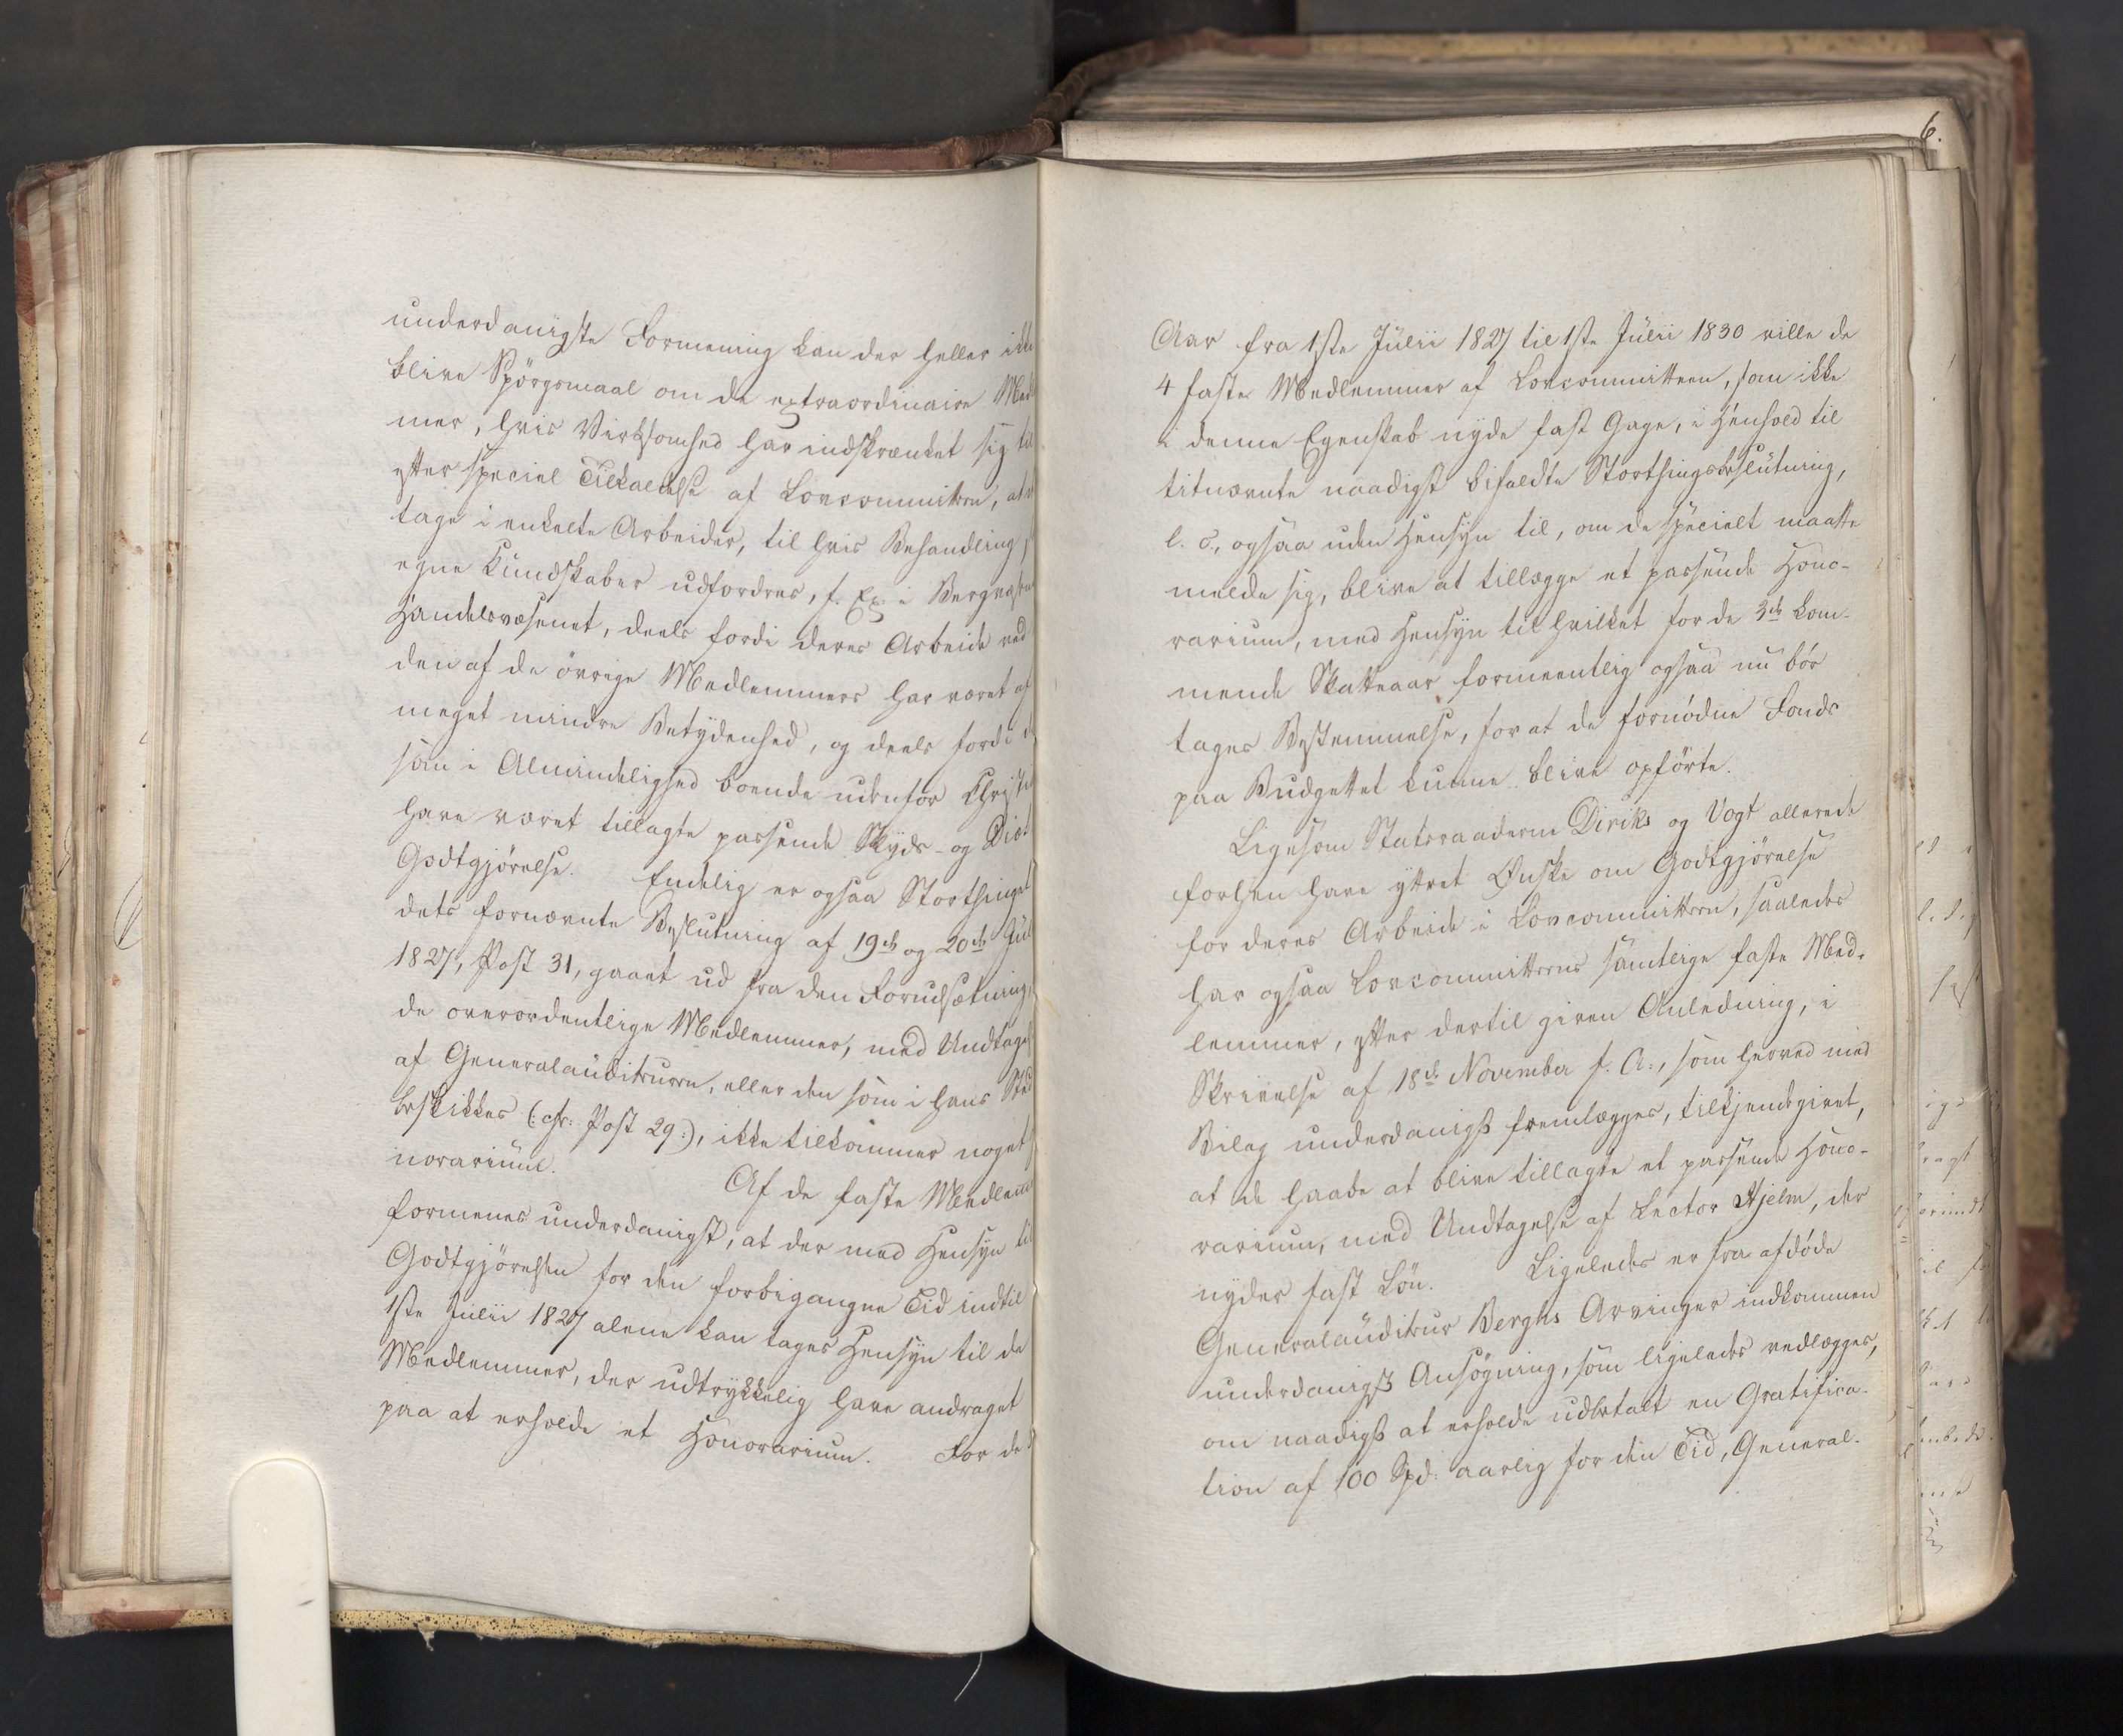 underdanigste Formening kan der heller ikke
blive Spörgsmaal om de extraordinaire Med
mer, hvis Virksomhed har indskrænket sig til
efter speciel Tilkaldelse af Lovcommitteen, at
tage i enkelte Arbeider, til hvis Behandling
egne Kundskaber udfordres, f. Ex: i Bergvæsen
Handelsvæsenet, deels fordi deres Arbeide ved
den af de övrige Medlemmers har været af
meget mindre Betydenhed, og deels fordi d
som i Almindelighed boende udenfor Christi
have været tillagte passende Skyds- og Diæt
Godtgjörelse. Endelig er ogsaa Storthinget
dets fornævnte Beslutning af 19de og 20de Jul
1827, Post 31, gaaet ud fra den Forudsætning,
de overordentlige Medlemmer, med Undtagel
af Generalauditeuren, eller den som i hans Sted
beskikkes (: cfr: Post 29:), ikke tilkommer noget
norarium. Af de faste Medlem
formenes underdanigst, at der med Hensyn til
Godtgjörelsen for den forbigangne Tid indtil
1ste Julii 1827 alene kan tages Hensyn til de
Medlemmer, der udtrykkelig have andraget
paa at erholde et Honorarium. For de
6.
Aar fra 1ste Julii 1827 til 1ste Julii 1830 ville de
4 faste Medlemmer af Lovcommitteen, som ikke
i denne Egenskab nyde fast Gage, i Henhold til
titnævnte naadigst bifaldte Storthingsbeslutning,
l. c., ogsaa uden Hensyn til, om de specielt maatte
melde sig, blive at tillægge et passende Hono-
rarium, med Hensyn til hvilket for de 3de kom-
mende Skatteaar formeentlig ogsaa nu bör
tages Bestemmelse, for at de fornödne Fonds
paa Budgettet kunne blive opförte.
Ligesom Statsraaderne Diriks og Vogt allerede
forhen have yttret Ønske om Godtgjörelse
for deres Arbeide i Lovcommitteen, saaledes
har ogsaa Lovcommitteens samtlige faste Med-
lemmer, efter dertil given Anledning, i
Skrivelse af 18de November f. A., som herved med
Bilag underdanigst fremlægges, tilkjendegivet,
at de haabe at blive tillagte et passende Hono-
rarium, med Undtagelse af Lector Hjelm, der
nyder fast Lön. Ligeledes er fra afdöde
Generalauditeur Berghs Arvinger indkommen
underdanigst Ansögning, som ligeledes vedlægges,
om naadigst at erholde udbetalt en Gratifica-
tion af 100 Spd: aarlig for den Tid, General-